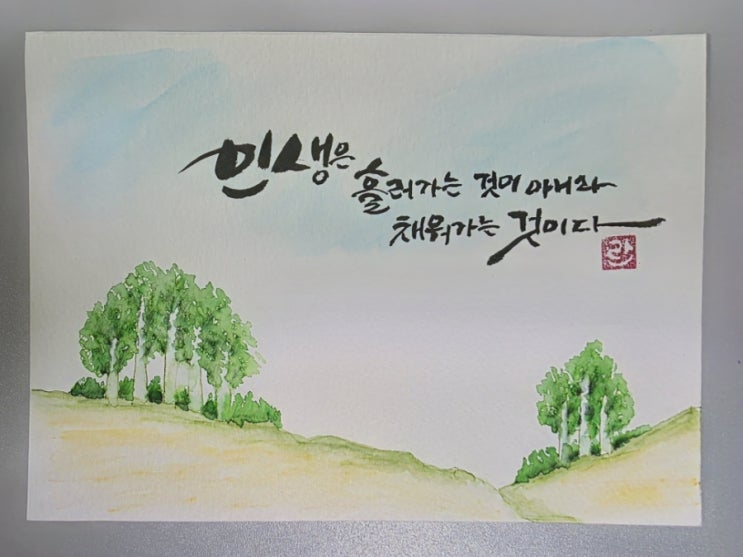 인생은
흘러가는 것이 아니라
채워가는 것이다